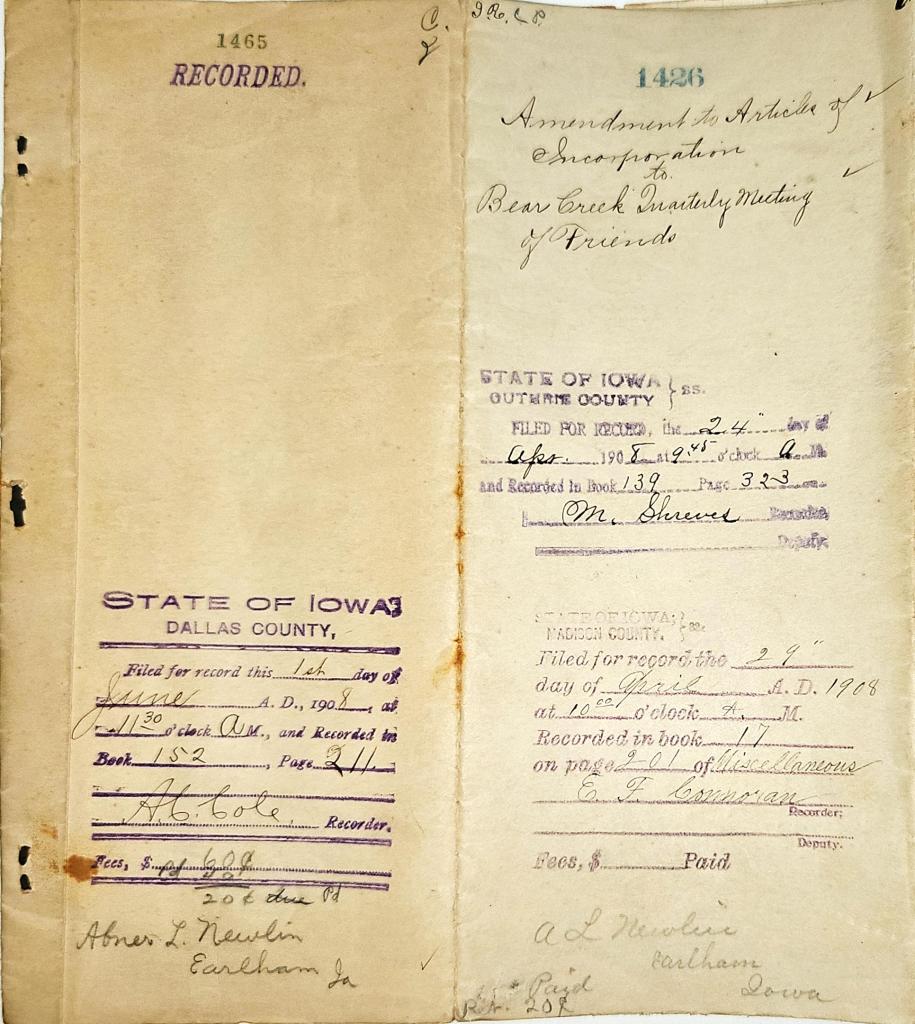 C.
2
1465
RECORDED.
STATE OF IOWA
DALLAS COUNTY,
Filed for record this 1st day of
June A. D., 1908, at
11 30 o'clock A M., and Recorded in
Book 152, Page 211
A. C. Cole Recorder.
Fees, $ Pd 60¢
20¢ due Pd
Abner L. Newlin
Earlham Ia
1426
Amendment to Articles of ✓
Incorporation
to
Bear Creek Quarterly Meeting ✓
of Friends
STATE OF IOWA } ss.
GUTHRIE COUNTY
FILED FOR RECORD, the 24" day of
Apr. 1908 at 9 45 o'clock A M.
and Recorded in Book 139 Page 323
M. Shreves Recorder,
Deputy.
STATE OF IOWA; } ss.
MADISON COUNTY.
Filed for record the 29"
day of April A. D. 1908
at 10 00 o'clock A. M.
Recorded in book 17
on page 201 of Miscellaneous
E. F. Connoran
Recorder;
Deputy.
Fees, $ Paid
A L Newlin
Earlham
Iowa
Paid
20¢